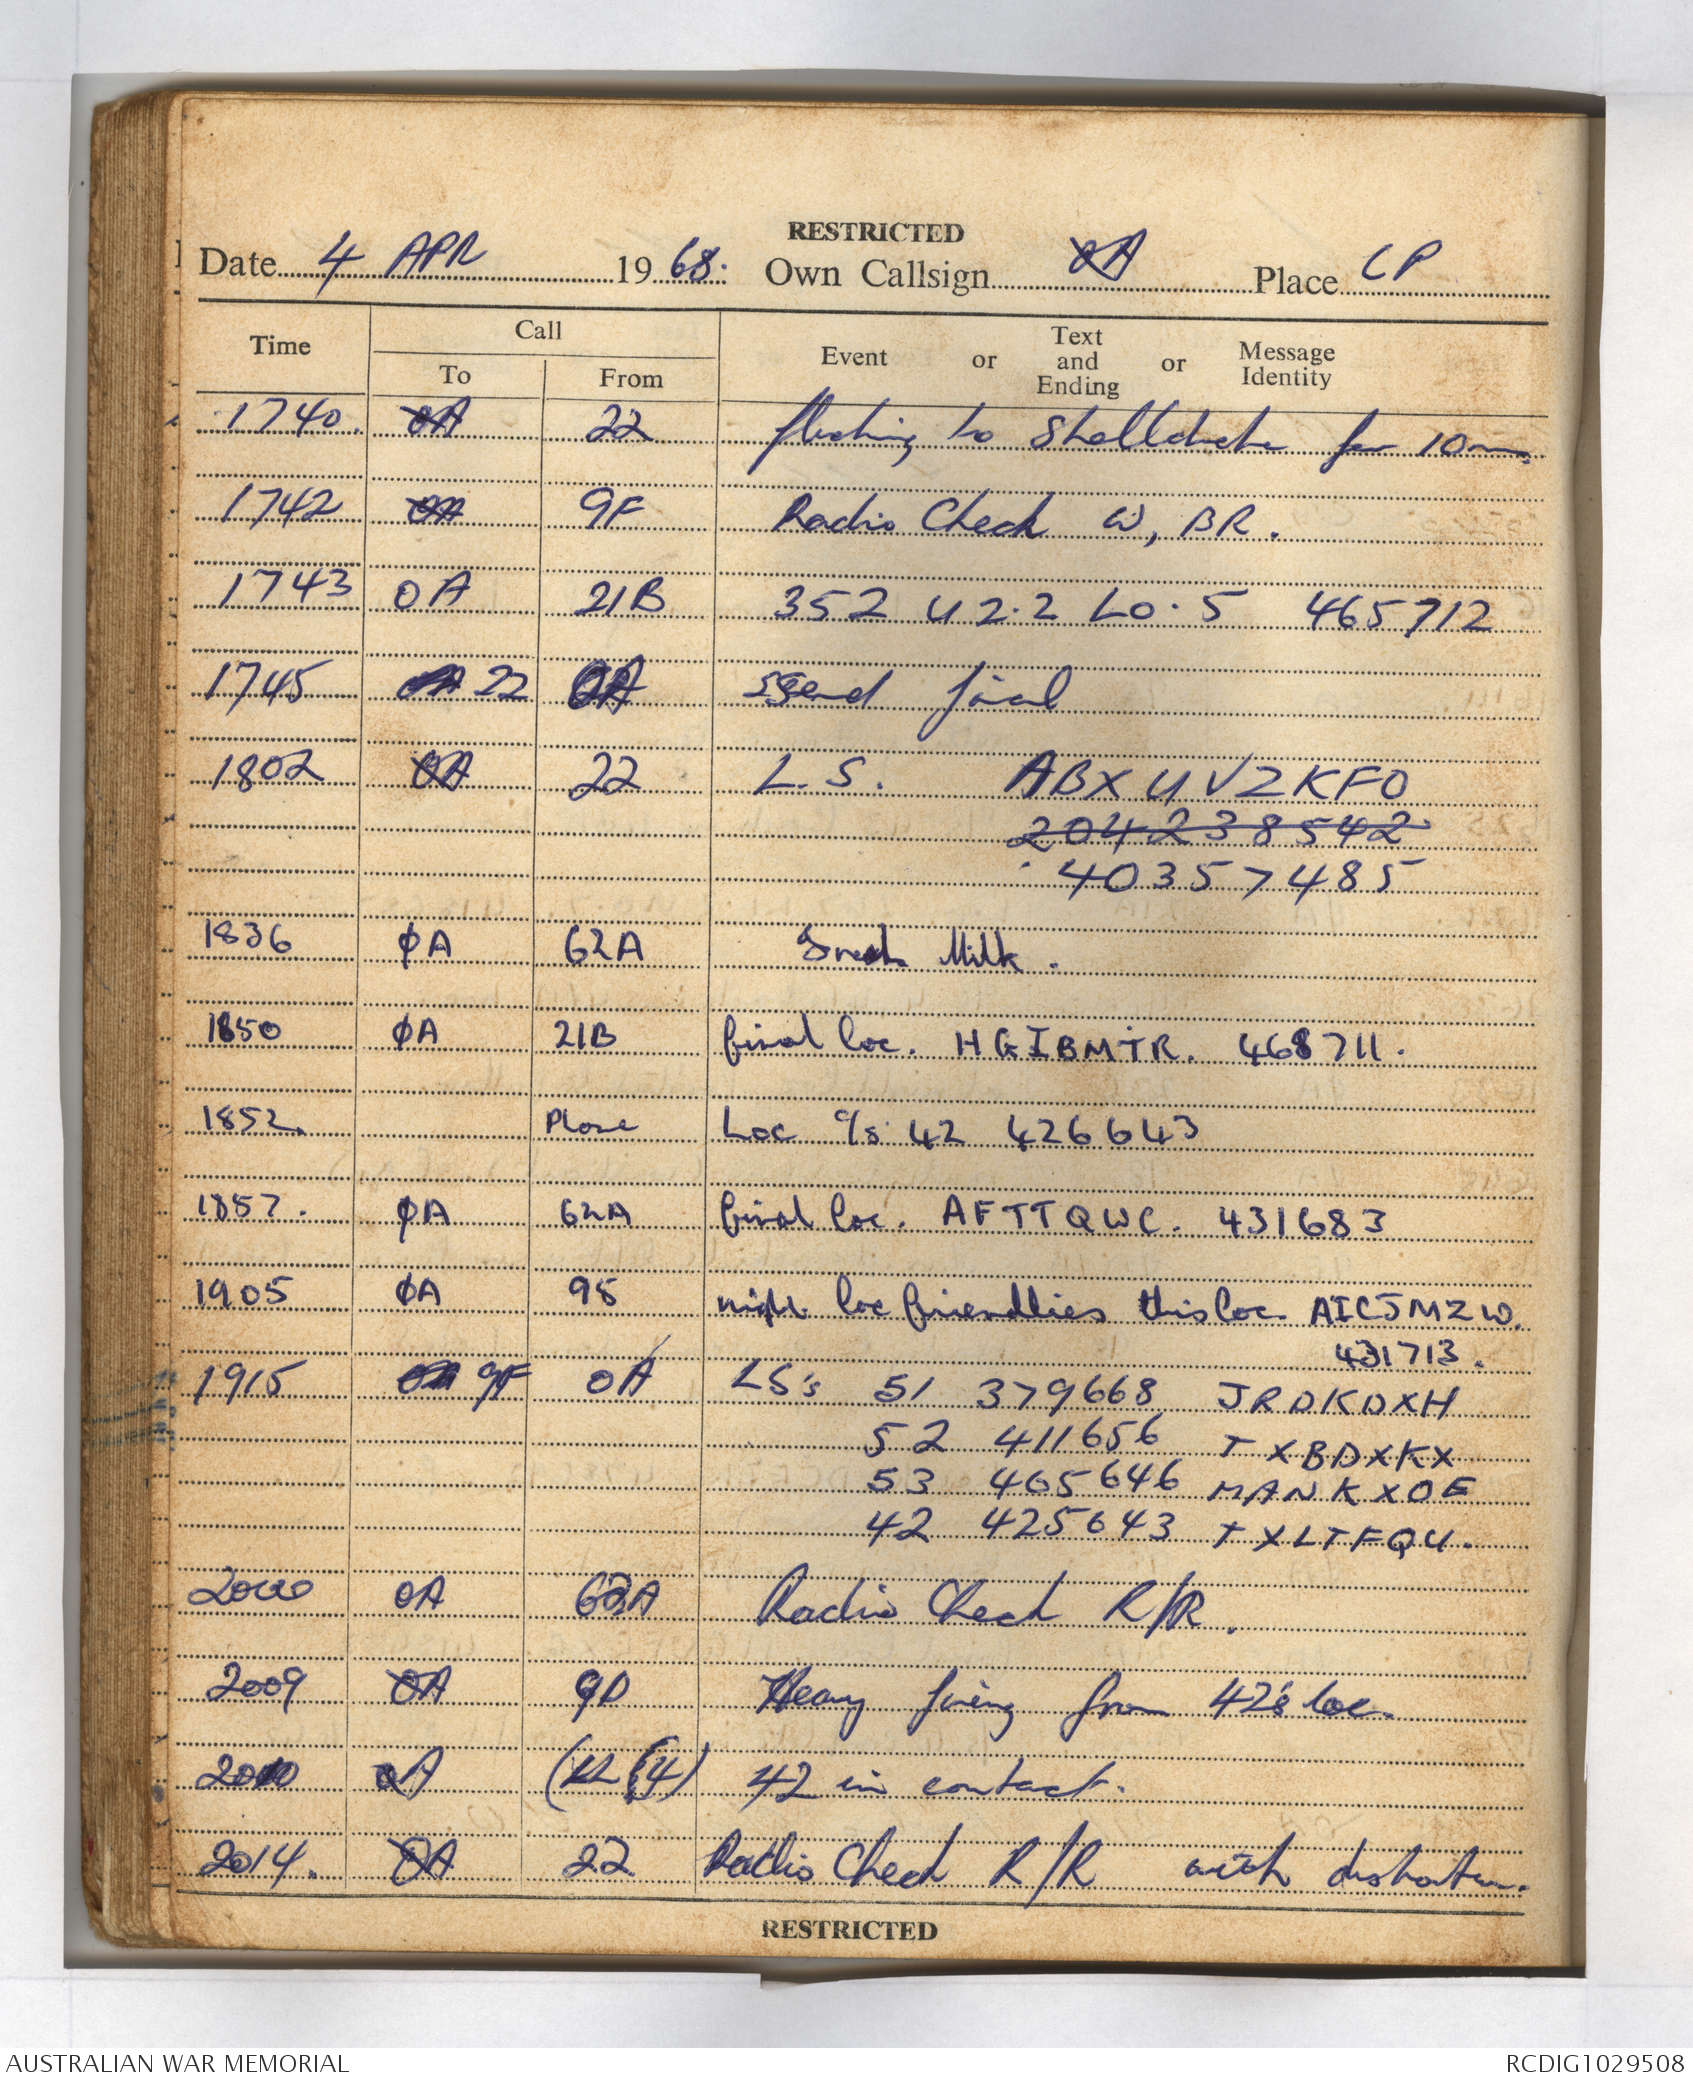 RESTRICTED
Date 4 APR 1968. Own Callsign 0A Place CP
Time Call Event or Text and Ending or Message Identity
To From
1740. 0A 22 to for 10
1742 0A 9F Radio Check W, BR.
1743 0A 21B 352 U 2.2 L0.5 465712
1745 22 0A Send final
1802 0A 22 L.S. ABX U VZKFO
204238542
40357485
1836 0A 62A Milk.
1850 0A 21B final loc. HGIBMTR. 468711.
1852. Phone Loc c/s 42 426643
1857. 0A 62A final loc. AFTTQWC. 431683
1905 0A 98 night loc friendlies this loc AICJMZW.
431713.
1915 9F 0A LS's 51 379668 JRDKDXH
52 411656 TXBDXKX
53 465646 MANKXOE
42 425643 TXLTFQU.
2000 0A 62A Radio Check R/R.
2009 0A 9D Heavy firing from 42's loc.
2010 0A 42 in contact.
2014. 0A 22 Radio Check R/R with distortion.
RESTRICTED
AUSTRALIAN WAR MEMORIAL RCDIG1029508